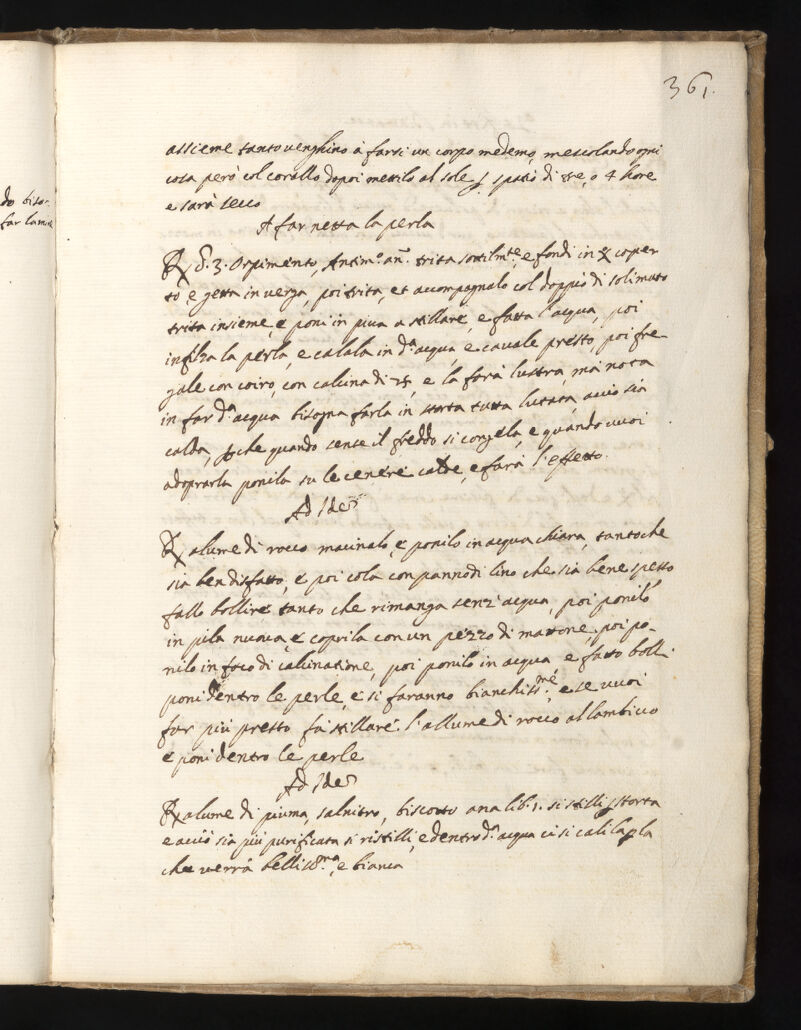 361.
assieme tanto venghino à farsi un corpo medemo, mescolando ogni
cosa però col corallo dopoi mettilo al sole p spatio di tre, o 4 hore
e sarà secco
do biso-
far lamin
A far netta la perla
Orpimento, Antim.º an.ª trita sottilm.te e fondi in coper
to, e getta in verga, poi trita, et accompagnalo col doppio di solimato
trita insieme, e poni in piua a stillare, e fatta l'acqua, poi
infilza la perla, e calala in d.ª acqua, e cavale presto, poi fre-
gale con coiro, con calcina di, e la farà lustra, mà nota
in far d.ª acqua bisogna farla in storta tutta lutata, acciò sia
calda, pche quando sente il freddo si congela, e quando vuoi
adoprarla ponila su le cenere calde, e farà l'effetto.
Ad Idem
alume di rocco macinalo, e ponilo in acqua chiara, tanto che
sia ben disfatto, e poi cola con panno di lino che sia bene spesso
fallo bollire tanto che rimanga senz'acqua, poi ponilo
in pila nuova, e coprila con un pezzo di mattone, poi po-
nilo in foco di calcinatione, poi ponilo in acqua, e fatto boll.
poni dentro le perle, e si faranno bianchiss.me, e se vuoi
far più presto fà stillare l'allume di rocco al lambicco
e poni dentro le perle
Ad Idem
alume di piuma, salnitro, biscotto ana lib. 1. si stilli p storta
e acciò sia più purificata si ristilli, e dentro d.ª acqua ci si cali la pla
che verrà belliss.ma, e bianca